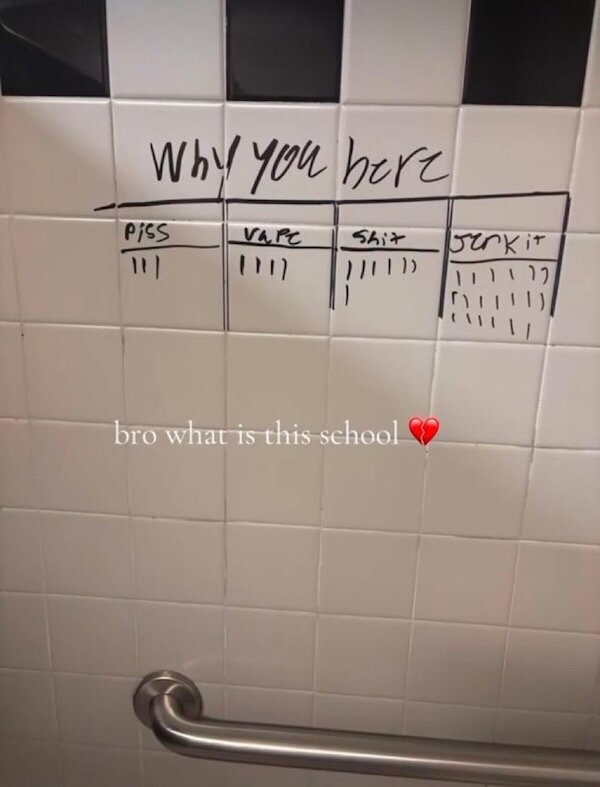 Why you here
Piss vape shit Jerk it
bro what is this school 💔